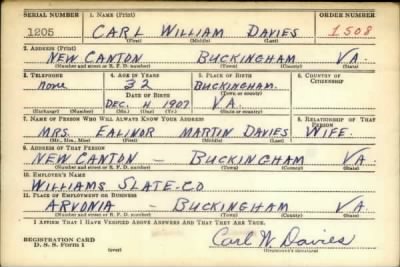 SERIAL NUMBER 1. NAME (Print) ORDER NUMBER
1205 CARL WILLIAM DAVIES 1508
(First) (Middle) (Last)
2. ADDRESS (Print)
NEW CANTON BUCKINGHAM VA.
(Number and street or R. F. D. number) (Town) (County) (State)
3. TELEPHONE 4. AGE IN YEARS 5. PLACE OF BIRTH 6. COUNTRY OF CITIZENSHIP
None 32 BUCKINGHAM.
DATE OF BIRTH (Town or county)
DEC. 4 1907 VA.
(Exchange) (Number) (Mo.) (Day) (Yr.) (State or country)
7. NAME OF PERSON WHO WILL ALWAYS KNOW YOUR ADDRESS 8. RELATIONSHIP OF THAT PERSON
MRS. EALINOR MARTIN DAVIES WIFE.
(Mr., Mrs., Miss) (First) (Middle) (Last)
9. ADDRESS OF THAT PERSON
NEW CANTON — BUCKINGHAM VA.
(Number and street or R. F. D. number) (Town) (County) (State)
10. EMPLOYER'S NAME
WILLIAMS SLATE-CO
11. PLACE OF EMPLOYMENT OR BUSINESS
ARVONIA — BUCKINGHAM VA.
(Number and street or R. F. D. number) (Town) (County) (State)
I AFFIRM THAT I HAVE VERIFIED ABOVE ANSWERS AND THAT THEY ARE TRUE.
REGISTRATION CARD
D. S. S. FORM 1 (over) Carl W. Davies
(Registrant's signature)